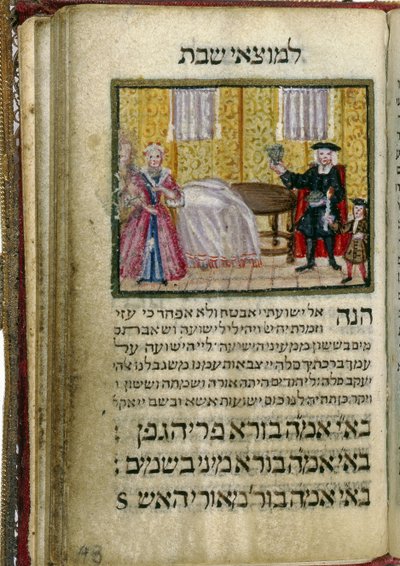 למוצאי שבת
הנה אל ישועתי אבטח ולא אפחד כי עזי
וזמרת יה יי ויהי לי לישועה ושאבתם
מים בששון ממעיני הישועה לייי הישועה על
עמך ברכתיך סלה יי צבאות עמנו משגב לנו אלהי
יעקב סלה ליהודים היתה אורה ושמחה וששון
ויקר כן תהיה לנו כוס ישועות אשא ובשם יי אקרא
באי אמה בורא פרי הגפן :
באי אמה בורא מיני בשמים :
באי אמה בור׳ מאורי האש
43